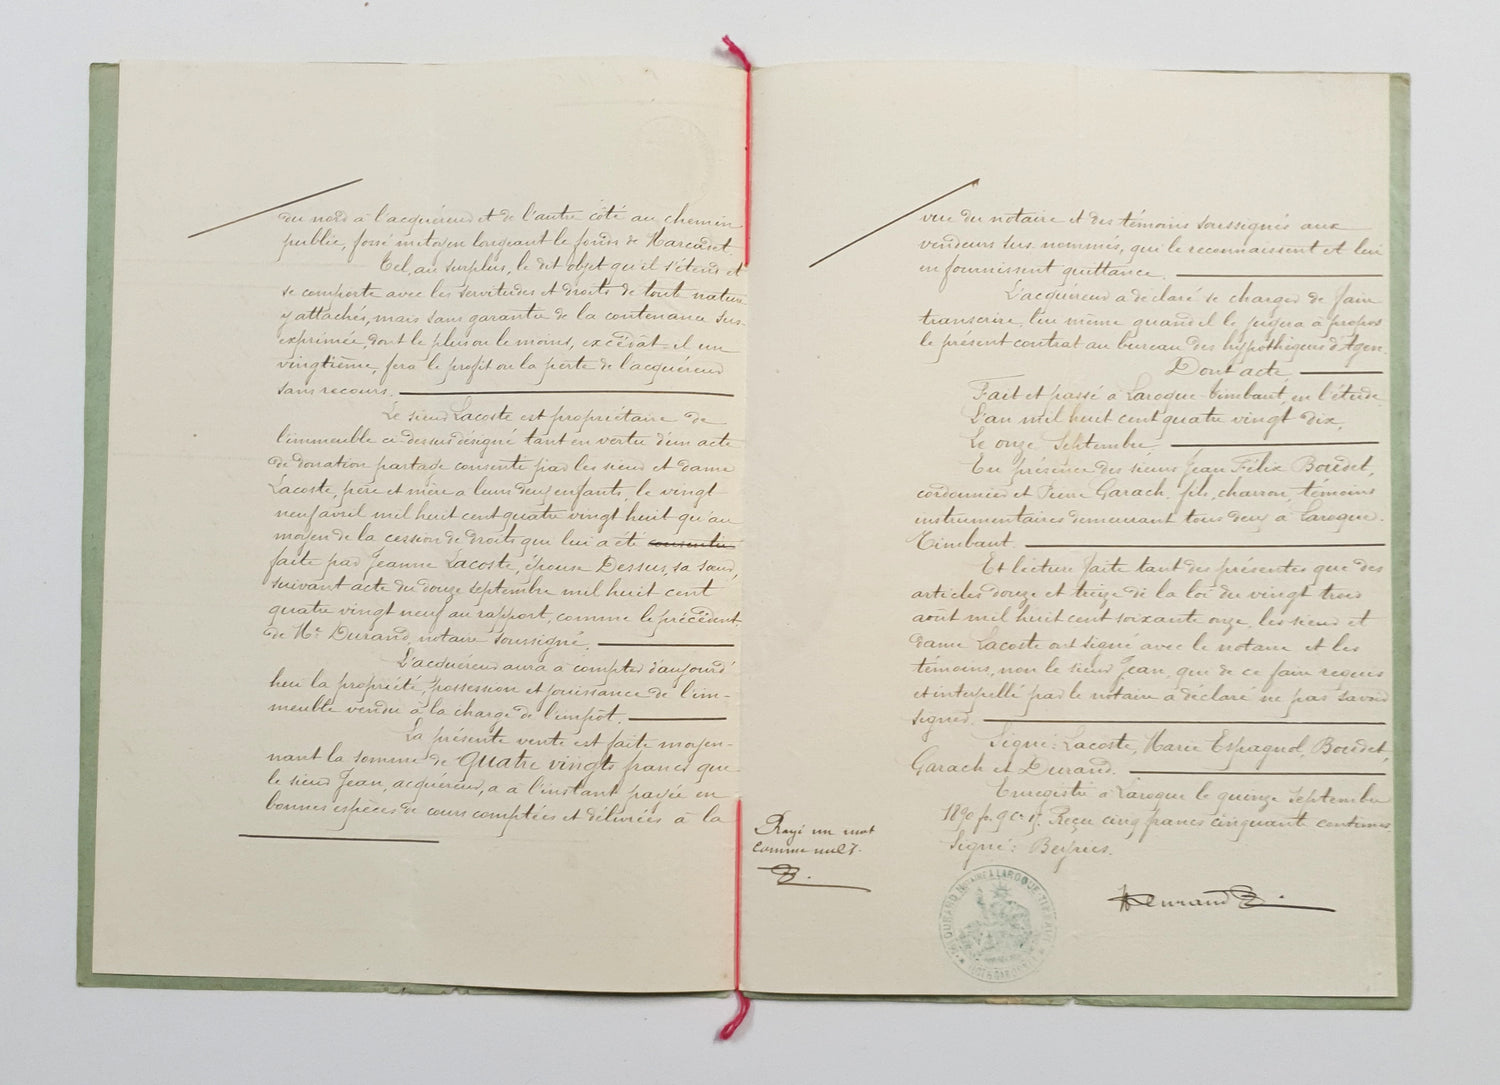 du nord à l'acquéreur et de l'autre côté au chemin
public, fossé mitoyen longeant le fonds de Marcadet.
Tel, au surplus, le dit objet qu'il s'étend et
se comporte avec les servitudes et droits de toute nature
y attachés, mais sans garantie de la contenance sus-
exprimée, dont le plus ou le moins, excédât-il un
vingtième, fera le profit ou la perte de l'acquéreur
sans recours.
Le sieur Lacoste est propriétaire de
l'immeuble ci-dessus désigné tant en vertu d'un acte
de donation partage consentie par les sieur et dame
Lacoste, père et mère a leurs deux enfants, le vingt
neuf avril mil huit cent quatre vingt huit qu'au
moyen de la cession de droits qui lui a été consentie
faite par Jeanne Lacoste, épouse Dessus, sa sœur,
suivant acte du douze septembre mil huit cent
quatre vingt neuf au rapport, comme le précédent
de Me Durand, notaire soussigné.
L'acquéreur aura à compter d'aujourd'
hui la propriété, possession et jouissance de l'im-
meuble vendu à la charge de l'impôt.
La présente vente est faite moyen-
nant la somme de quatre vingts francs que
le sieur Jean, acquéreur, a à l'instant payée en
bonnes espèces de cours comptées et délivrées à la
vue du notaire et des témoins soussignés aux
vendeurs sus-nommés, qui le reconnaissent et lui
en fournissent quittance.
L'acquéreur a déclaré se charger de faire
transcrire, lui même quand il le jugera à propos
le présent contrat au bureau des hypothèques d'Agen.
Dont acte
Fait et passé à Laroque-Timbaut, en l'étude
L'an mil huit cent quatre vingt dix,
Le onze Septembre,
En présence des sieurs Jean Félix Boudet,
cordonnier et Pierre Garach, fils, charron, témoins
instrumentaires demeurant tous deux à Laroque-
Timbaut.
Et lecture faite tant des présentes que des
articles douze et treize de la loi du vingt trois
août mil huit cent soixante onze, les sieur et
dame Lacoste ont signé avec le notaire et les
témoins, non le sieur Jean, que de ce faire requis
et interpellé par le notaire a déclaré ne pas savoir
signer.
Signé: Lacoste, Marie Espagnol, Boudet,
Garach et Durand.
Enregistré à Laroque le quinze Septembre
1890 fo. 9 Co. Reçu cinq francs cinquante centimes
Signé: Beyries.
Rayé un mot
comme nul
Durand
DURAND NOTAIRE A LAROQUE-TIMBAUT
LOT & GARONNE